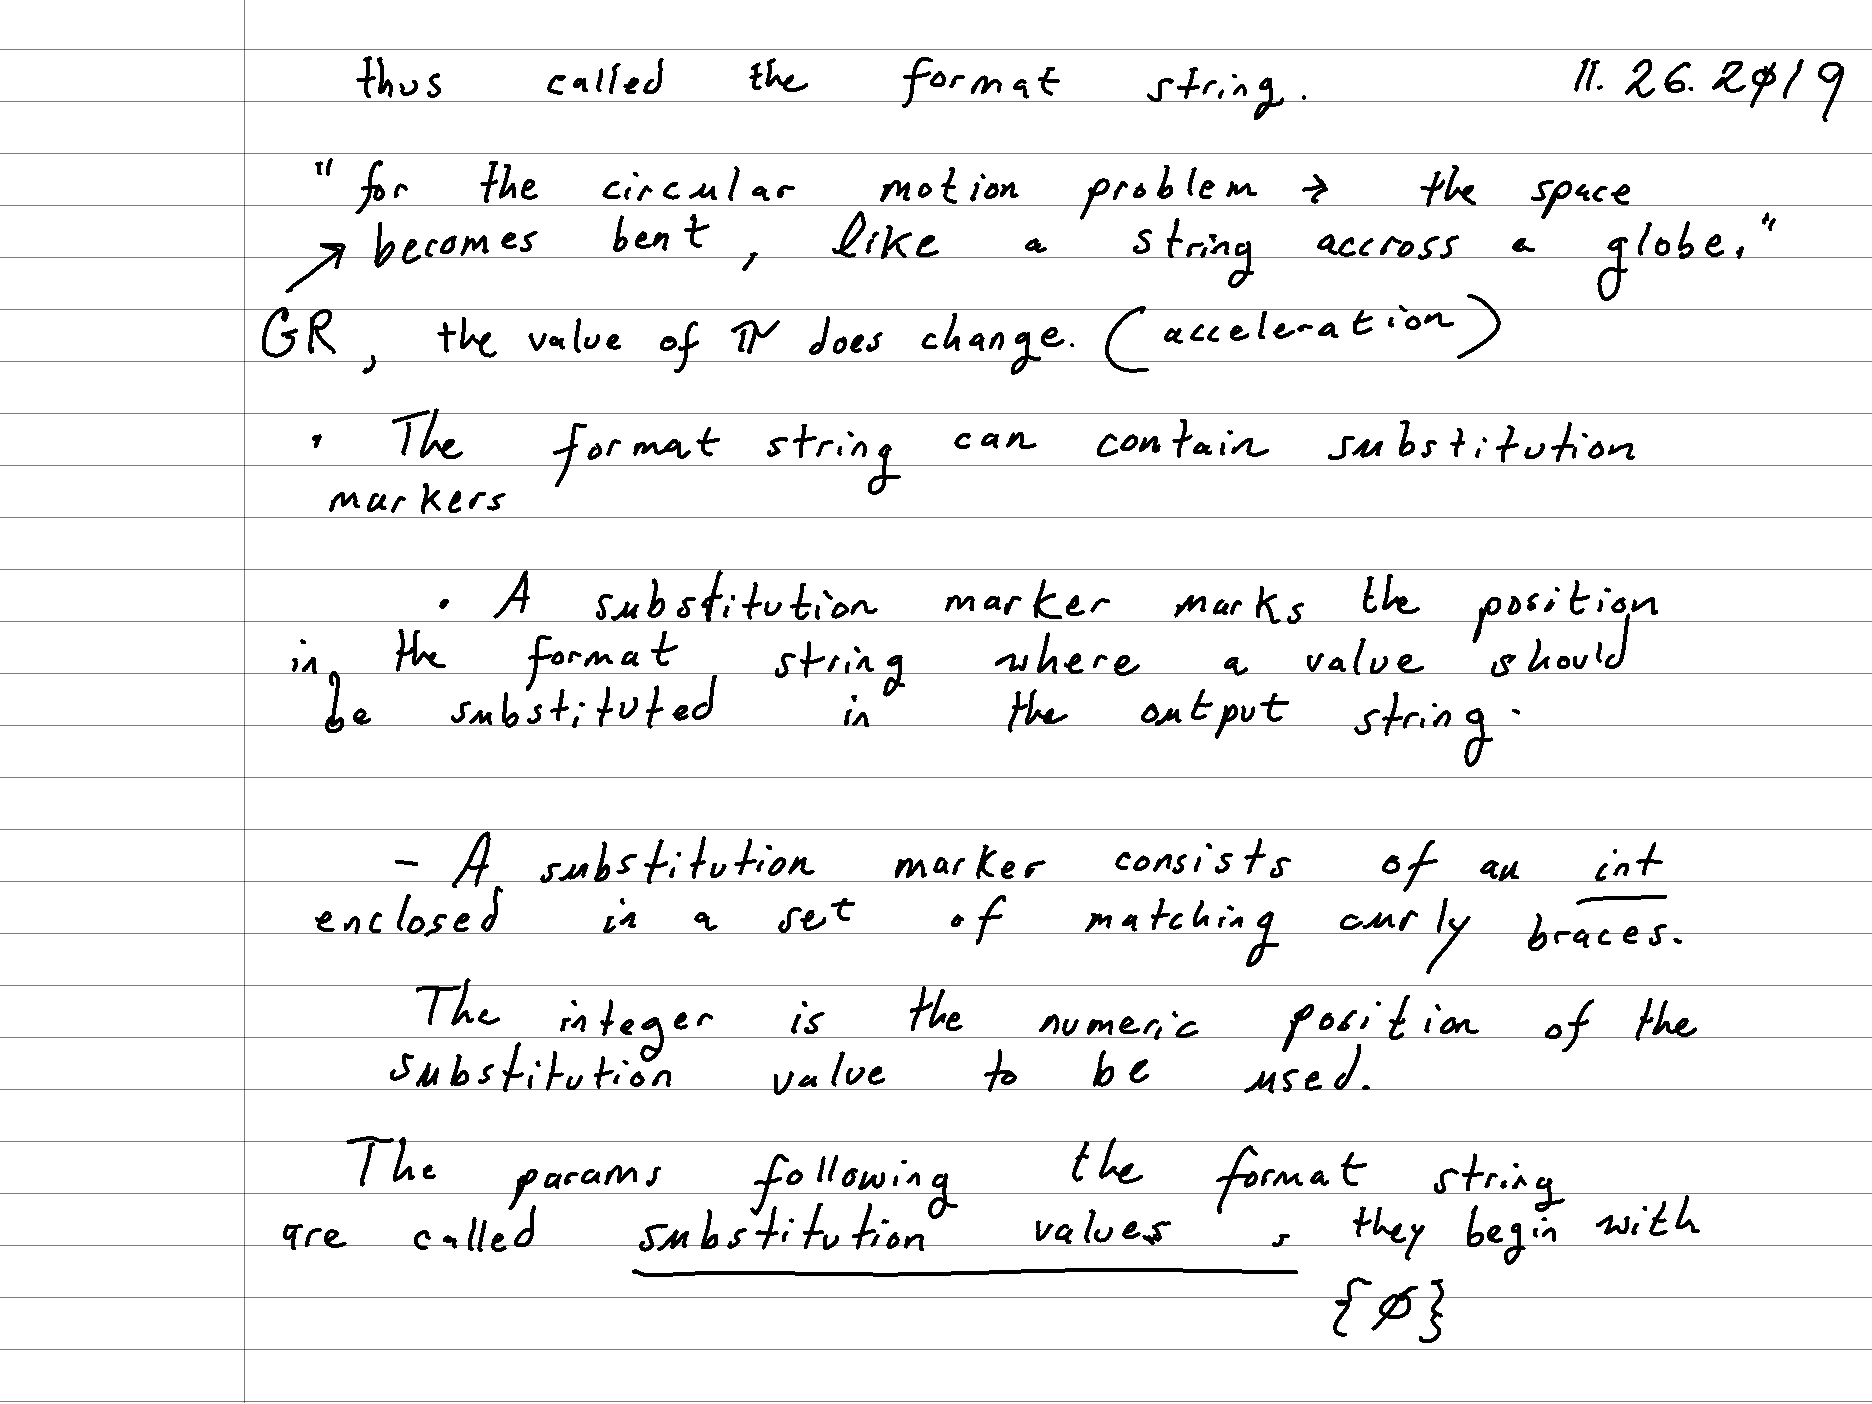 thus called the format string. 11.26.2019
"for the circular motion problem → the space
becomes bent, like a string accross a globe."
GR, the value of π does change. (acceleration)
• The format string can contain substitution
markers
• A substitution marker marks the position
in the format string where a value should
be substituted in the output string.
- A substitution marker consists of an int
enclosed in a set of matching curly braces.
The integer is the numeric position of the
substitution value to be used.
The params following the format string
are called substitution values, they begin with
{0}